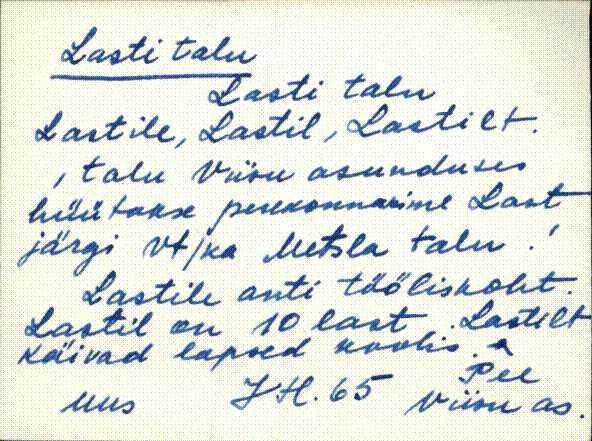 Lasti talu
Lasti talu
Lastile, Lastil, Lastilt.
, talu Viisu asunduses
hüütakse perekonnanime Last
järgi vt/ka Metsla talu.'
Lastile anti tööliskoht.
Lastil on 10 last. Lastilt
käivad lapsed koolis.
Pee
uus JH. 65 Viisu as.